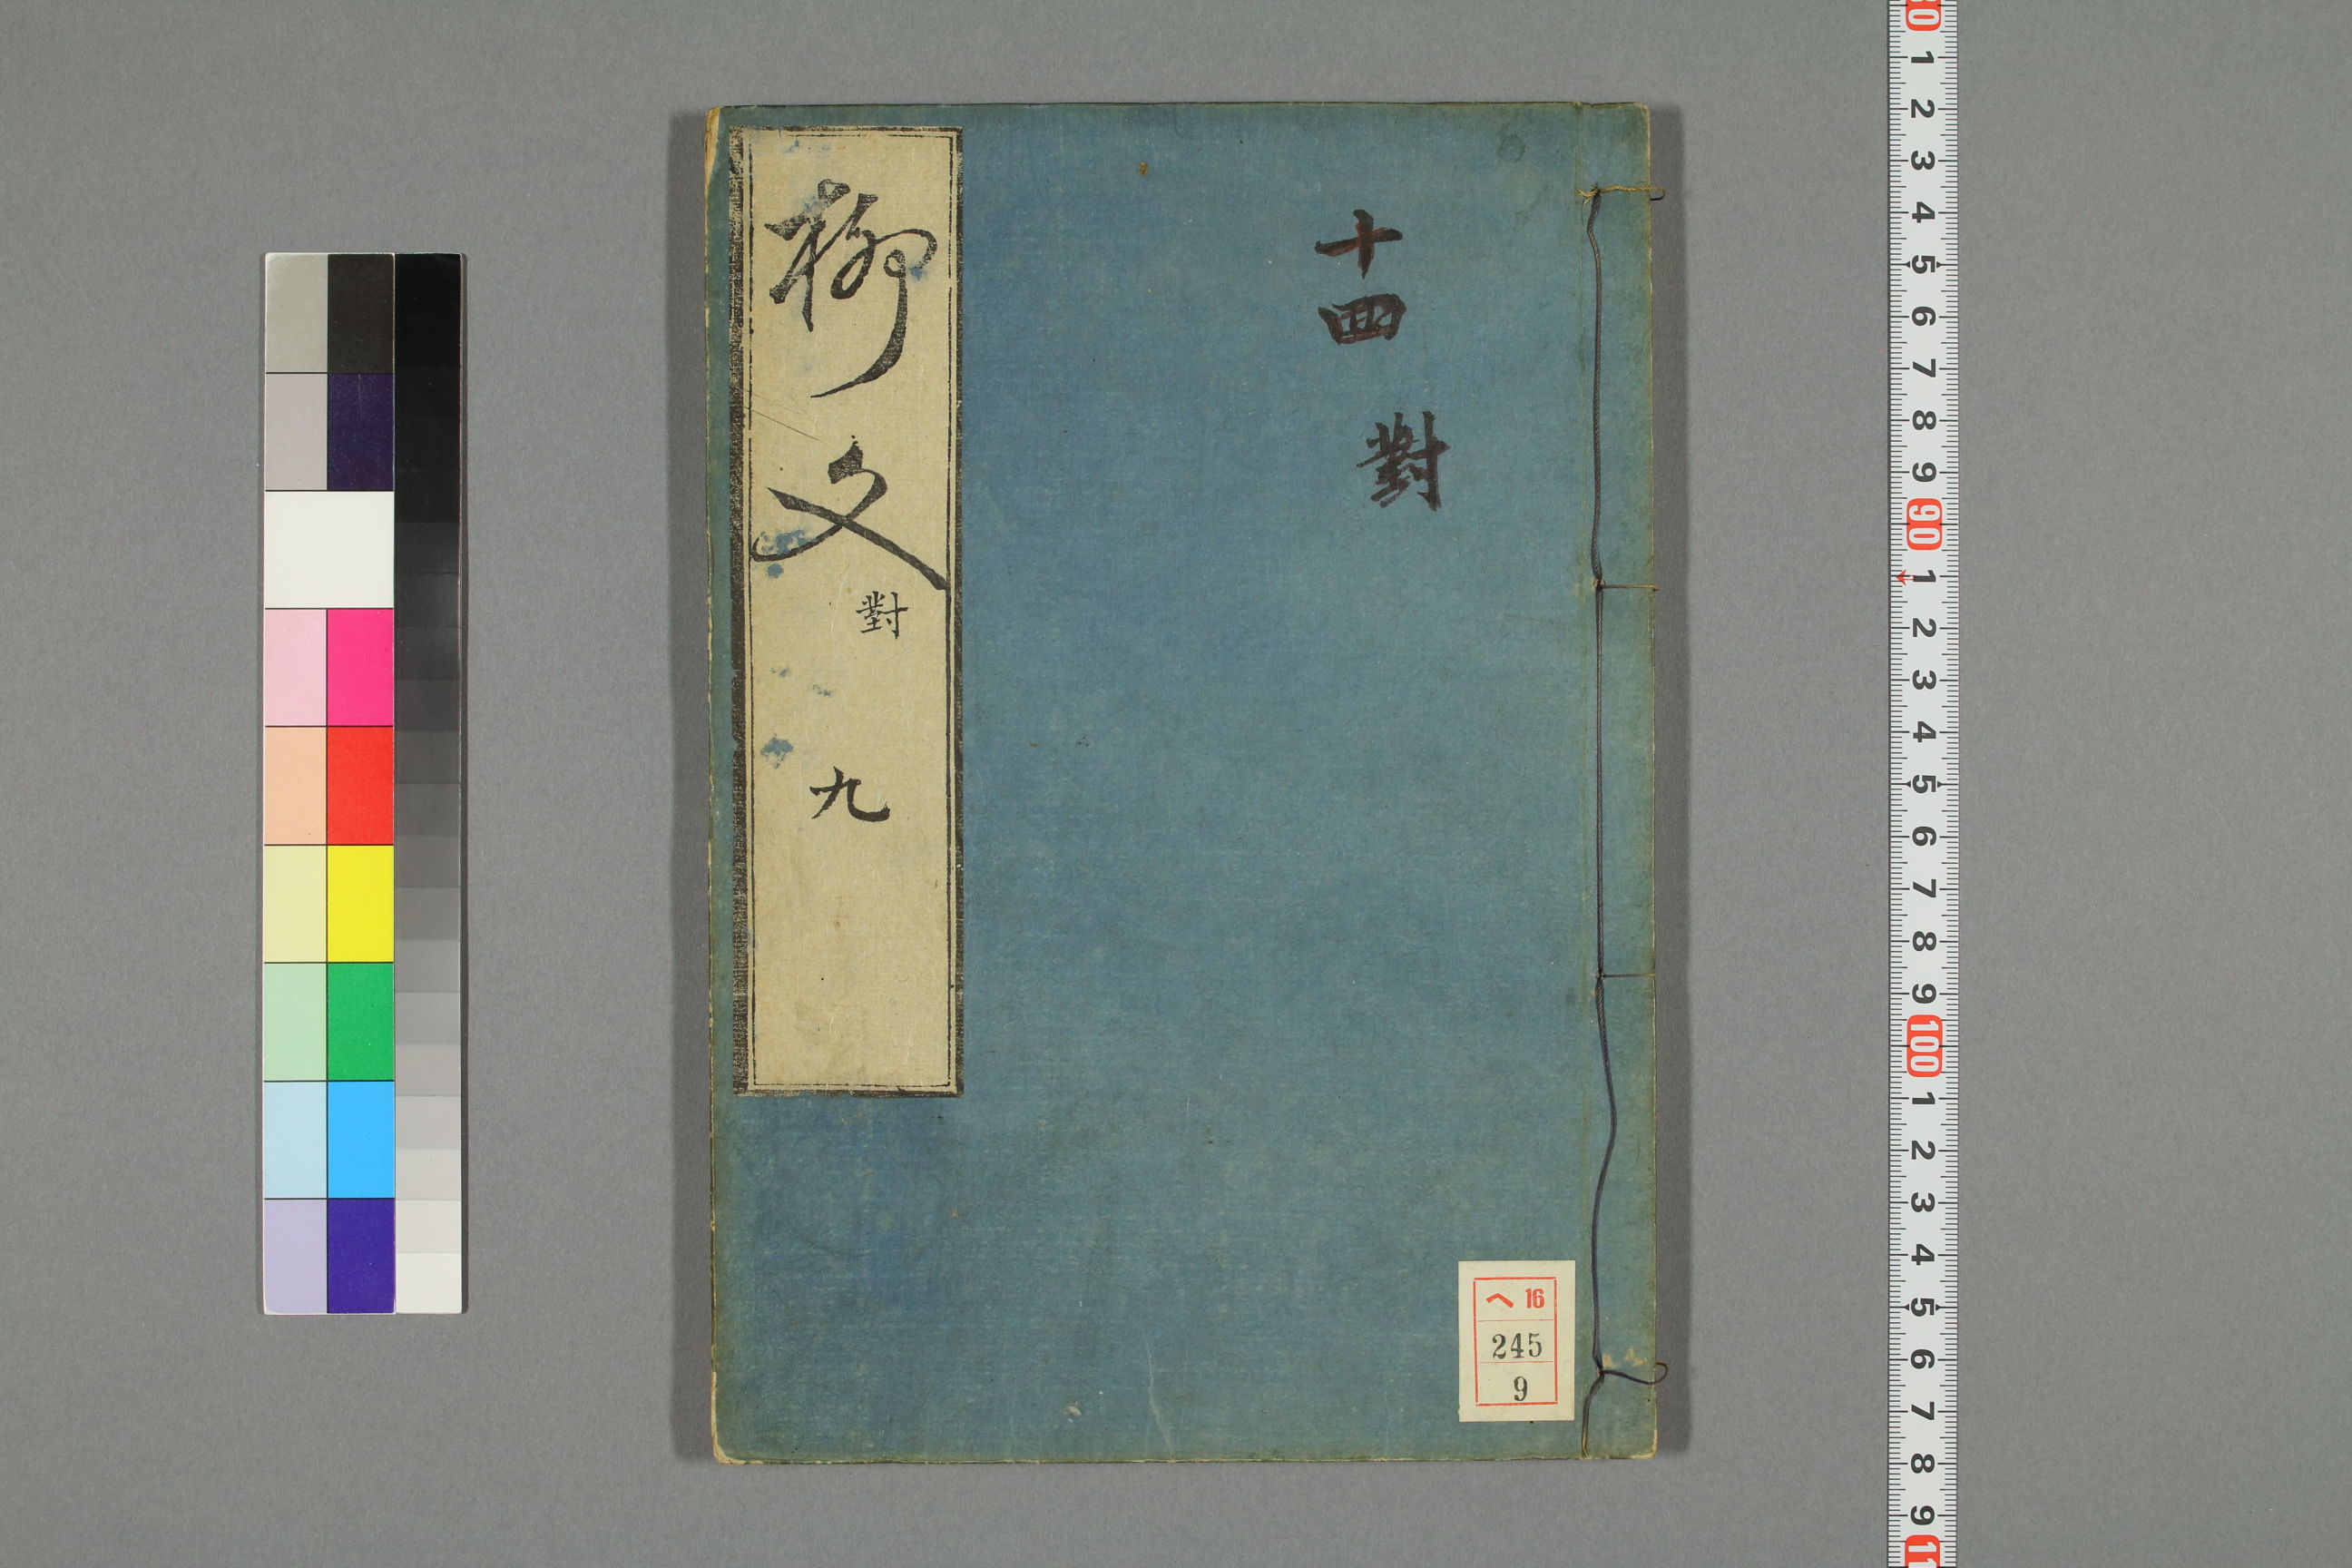 十四
對
柳文
對
九
ヘ 16
245
9
0
1
2
3
4
5
6
7
8
9
90
1
2
3
4
5
6
7
8
9
100
1
2
3
4
5
6
7
8
9